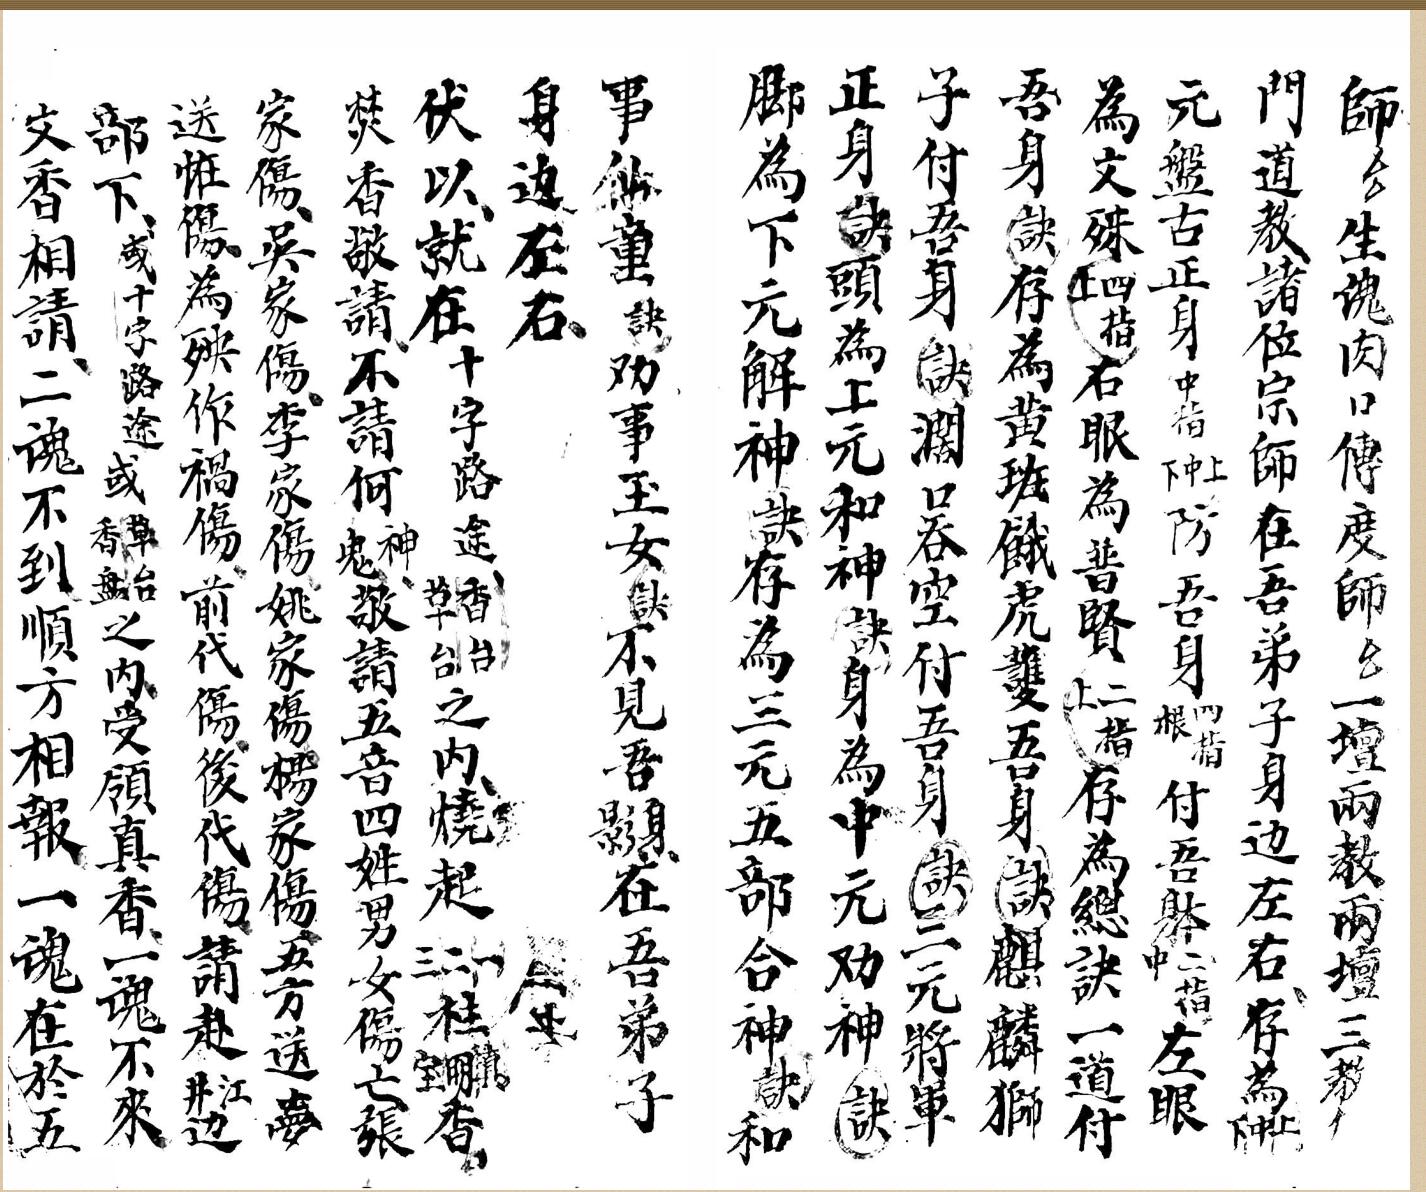 師〻生魂肉口傳度師〻一壇兩教兩壇三教
門道教諸位宗師在吾弟子身边左右、存為上中下
元盤古正身中指上中下防吾身四指根付吾躰二指中左眼
為文殊四指上右眼為普賢二指上存為總訣一道付
吾身訣存為黄班餓虎雙吾身訣麒麟獅
子付吾身訣濶口吞空付吾身訣三元將軍
正身訣頭為上元和神訣身為中元劝神訣
脚為下元解神訣存為三元五部合神訣和
事仙童訣劝事玉女訣不見吾身影、在吾弟子
身边左右、
伏以、就在十字路途、香台草台之内、燒起一二三柱清明宝香、
焚香敬請、不請何神鬼、敬請五音四姓男女傷亡張
家傷、吳家傷、李家傷姚家傷楊家傷、五方送夢
送恠傷、為殃作禍傷、前代傷、後代傷、請赴江井边
部下、或十字路途或草台香盤之内、受領真香、一魂不來、
文香相請、二魂不到順方相報、一魂在於五